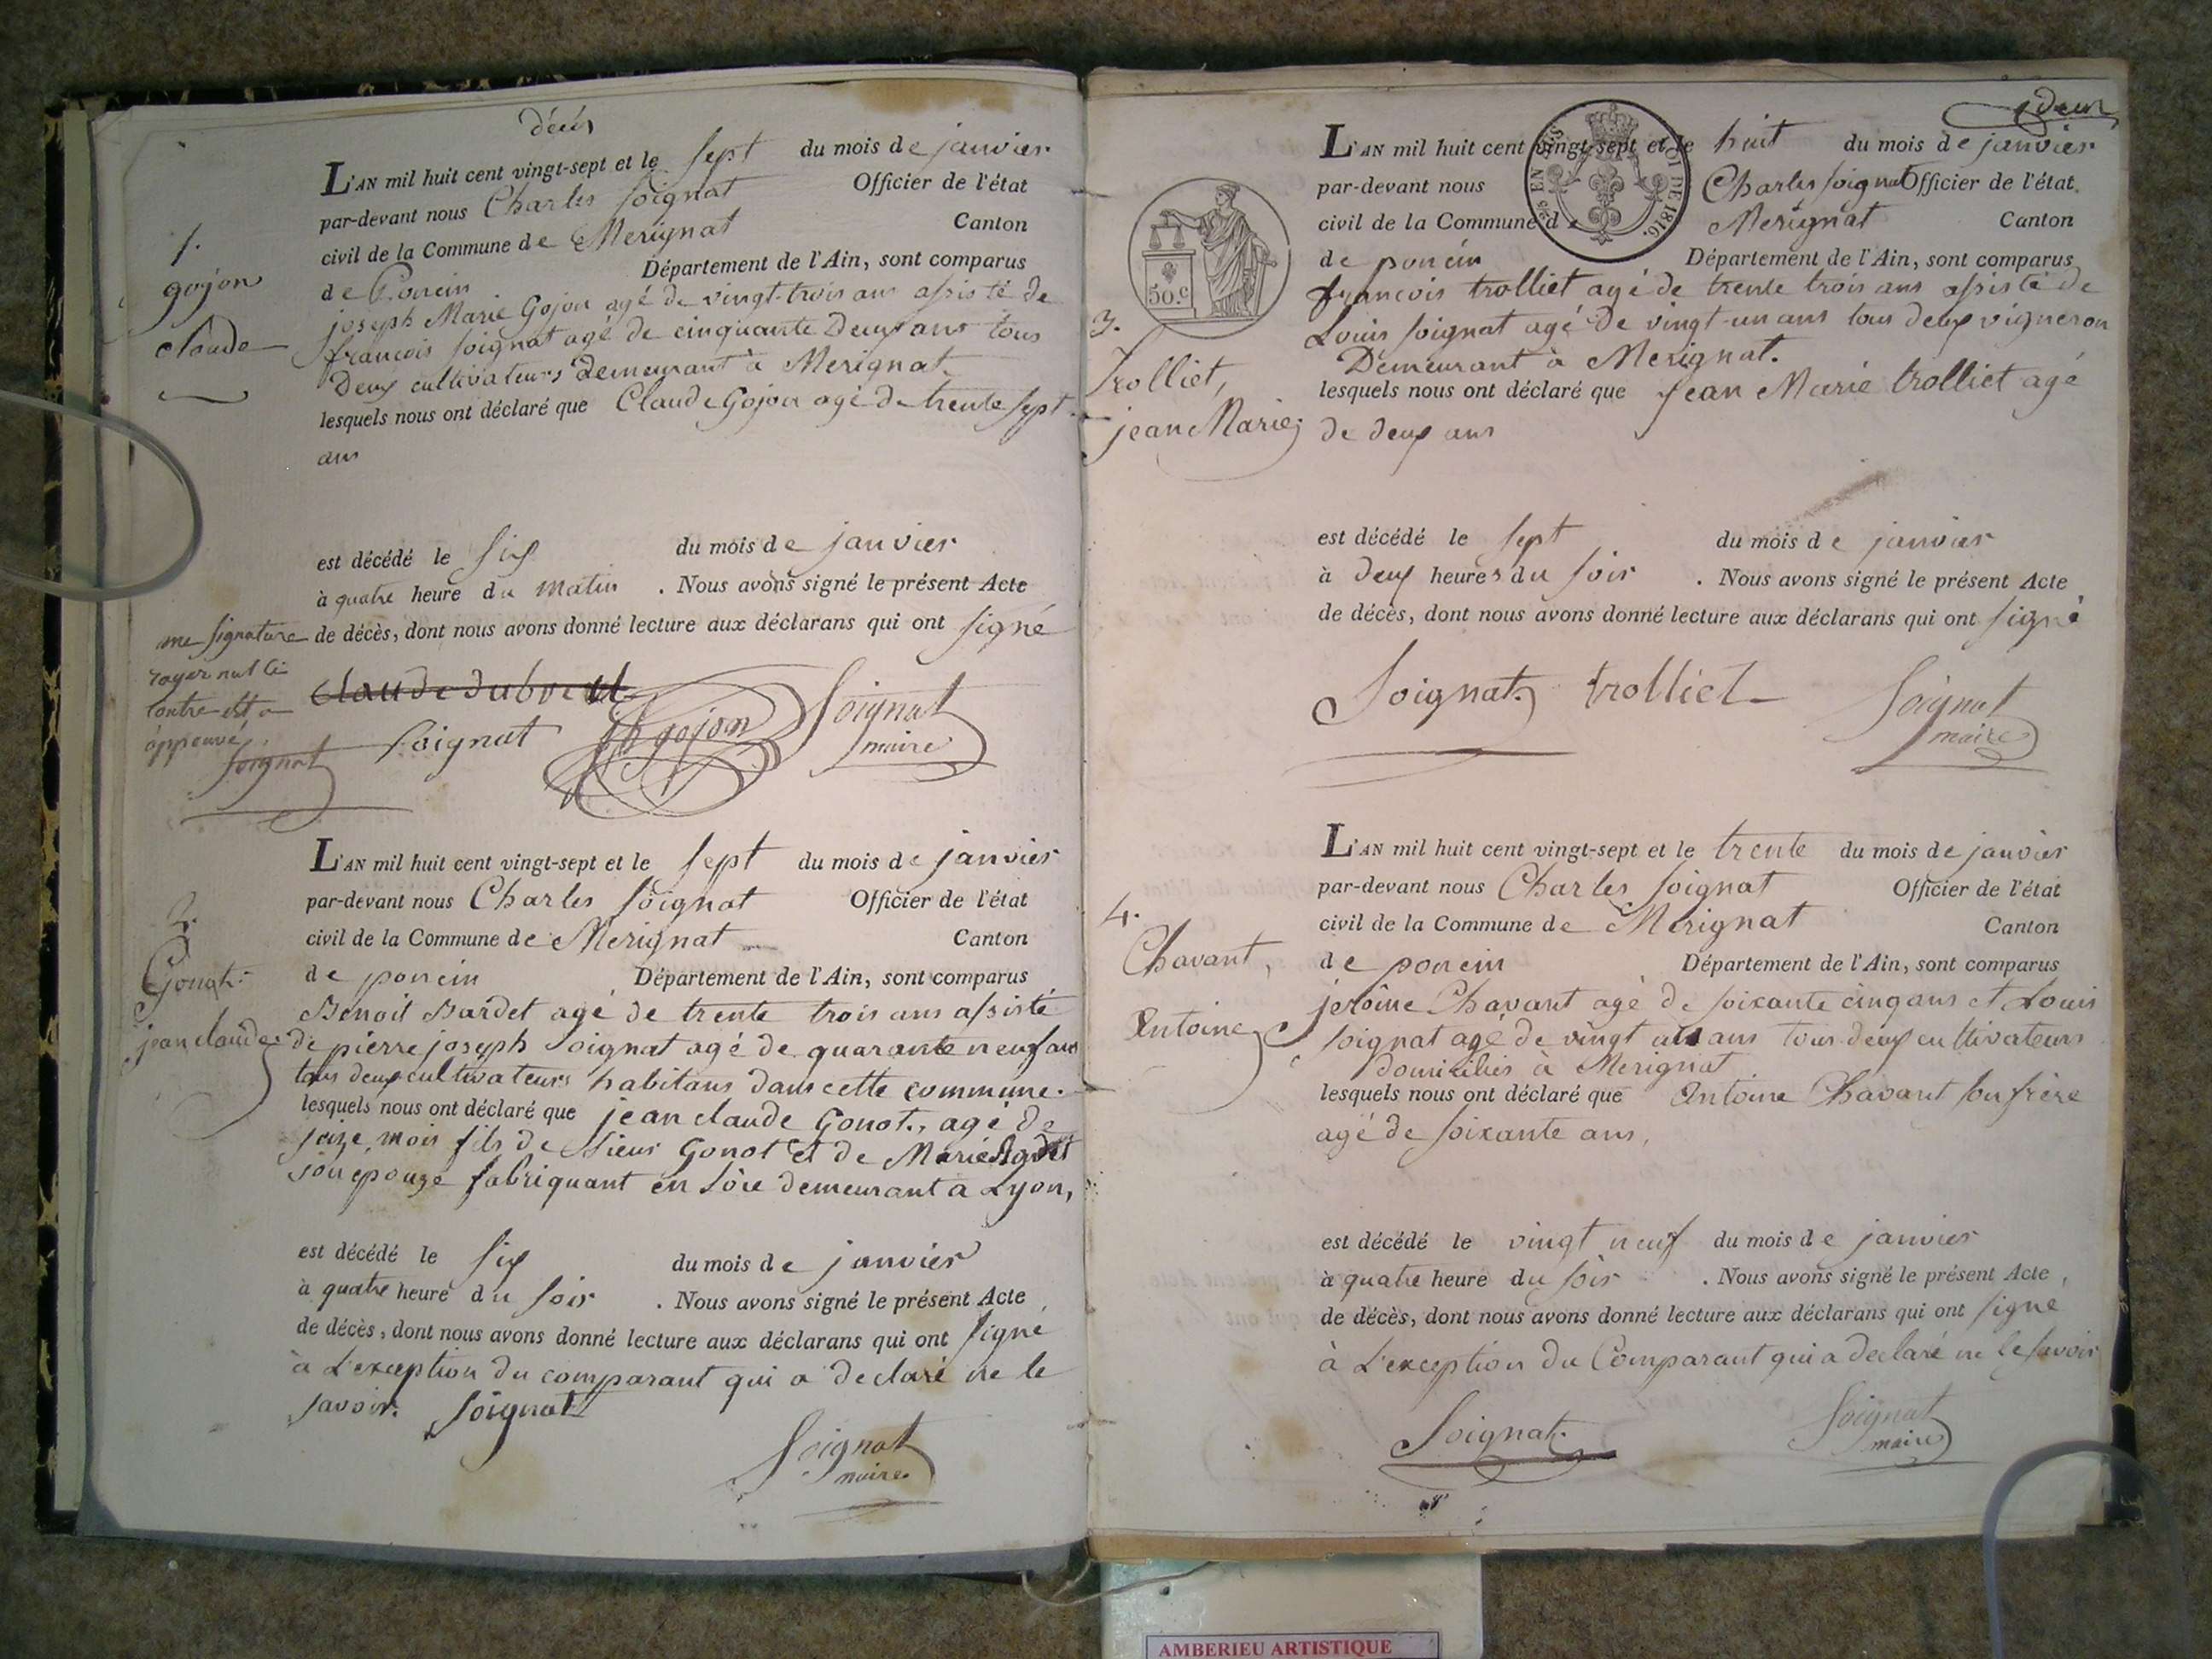 décès
L'AN mil huit cent vingt-sept et le sept du mois de janvier
par-devant nous Charles Soignat Officier de l'état
civil de la Commune de Merignat Canton
de Poncin Département de l'Ain, sont comparus
joseph Marie Gojon agé de vingt-trois ans assisté de
francois Soignat agé de cinquante Deux ans tous
Deux cultivateurs Demeurant à Merignat.
lesquels nous ont déclaré que Claude Gojon agé de trente sept
ans
1.
gojon
claude
est décédé le six du mois de janvier
à quatre heure du matin . Nous avons signé le présent Acte
de décès, dont nous avons donné lecture aux déclarans qui ont signé
me signature
rayer nulle
approuvé
Soignat
claude dubreul
Soignat gojon Soignat
maire
L'AN mil huit cent vingt-sept et le sept du mois de janvier
par-devant nous Charles Soignat Officier de l'état
civil de la Commune de Merignat Canton
de poncin Département de l'Ain, sont comparus
Benoit Bardet agé de trente trois ans assisté
de pierre joseph Soignat agé de quarante neuf ans
tous deux cultivateurs habitans dans cette commune.
lesquels nous ont déclaré que jean claude Gonot, agé de
seize mois fils de Sieur Gonot et de Marie
son épouze fabriquant en soie demeurant a Lyon,
2.
Gonot
jean claude
est décédé le six du mois de janvier
à quatre heure du soir . Nous avons signé le présent Acte
de décès, dont nous avons donné lecture aux déclarans qui ont signé
à L'exception du comparant qui a déclaré ne le
savoir. Soignat
Soignat
maire
deux
L'AN mil huit cent vingt-sept et le huit du mois de janvier
par-devant nous Charles Soignat Officier de l'état
civil de la Commune d Merignat Canton
de poncin Département de l'Ain, sont comparus
francois trolliet agé de trente trois ans assisté de
Louis Soignat agé de vingt-un ans tous deux vigneron
Demeurant à Merignat.
lesquels nous ont déclaré que Jean Marie trolliet agé
de deux ans
LOI DE 1816.
50.c
3.
Trolliet,
jean Marie
est décédé le sept du mois de janvier
à deux heures du soir . Nous avons signé le présent Acte
de décès, dont nous avons donné lecture aux déclarans qui ont signé
Soignat trolliet Soignat
maire
L'AN mil huit cent vingt-sept et le trente du mois de janvier
par-devant nous Charles Soignat Officier de l'état
civil de la Commune de Merignat Canton
de poncin Département de l'Ain, sont comparus
jerôme Chavant agé de soixante cinq ans et Louis
Soignat agé de vingt ans tous deux cultivateurs
Domiciliés à Merignat
lesquels nous ont déclaré que Antoine Chavant son frère
agé de soixante ans,
4.
Chavant,
Antoine
est décédé le vingt neuf du mois de janvier
à quatre heure du soir . Nous avons signé le présent Acte
de décès, dont nous avons donné lecture aux déclarans qui ont signé
à L'exception du Comparant qui a declaré ne le savoir
Soignat Soignat
maire
AMBERIEU ARTISTIQUE